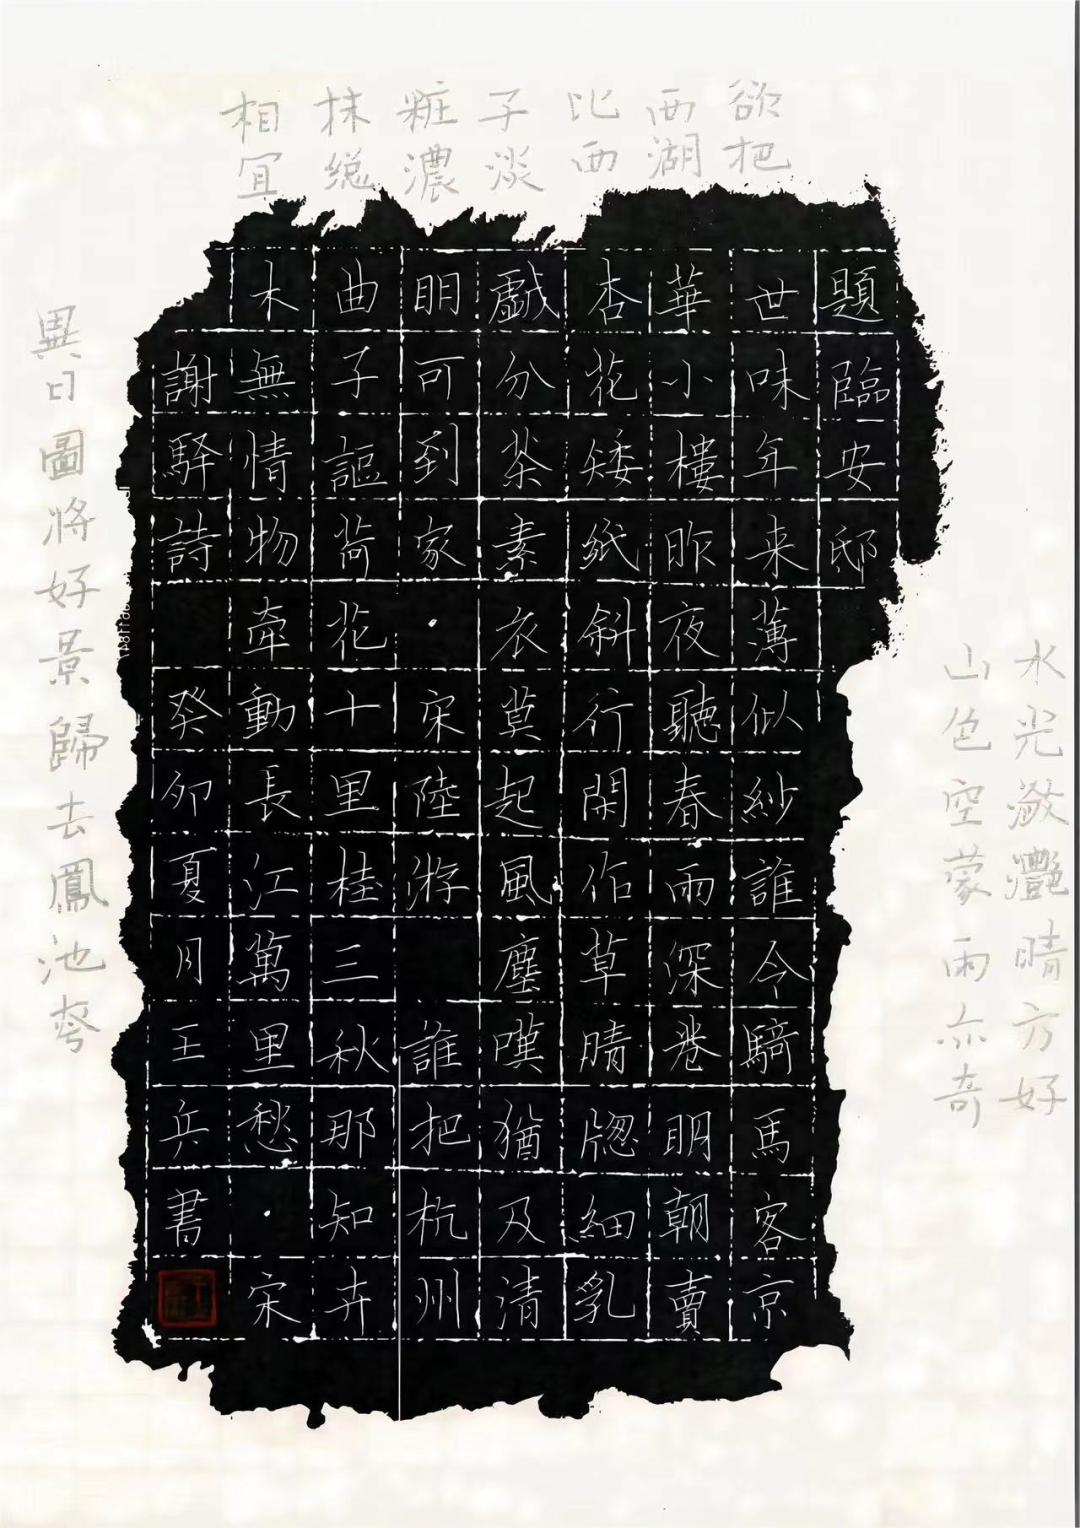 水光瀲灔晴方好
山色空蒙雨亦奇
欲把
西湖
比西
子淡
粧濃
抹緫
相冝
題臨安邸
世味年来薄似紗誰今騎馬客京
華小樓昨夜聽春雨深巷眀朝賣
杏花矮紙斜行閑作草晴牕細乳
戲分茶素衣莫起風塵嘆猶及清
眀可到家·宋陸游 誰把杭州
曲子謳荷花十里桂三秋那知卉
木無情物牽動長江萬里愁·宋
謝驛詩 癸卯夏月王兵書
異日圖將好景歸去鳳池夸